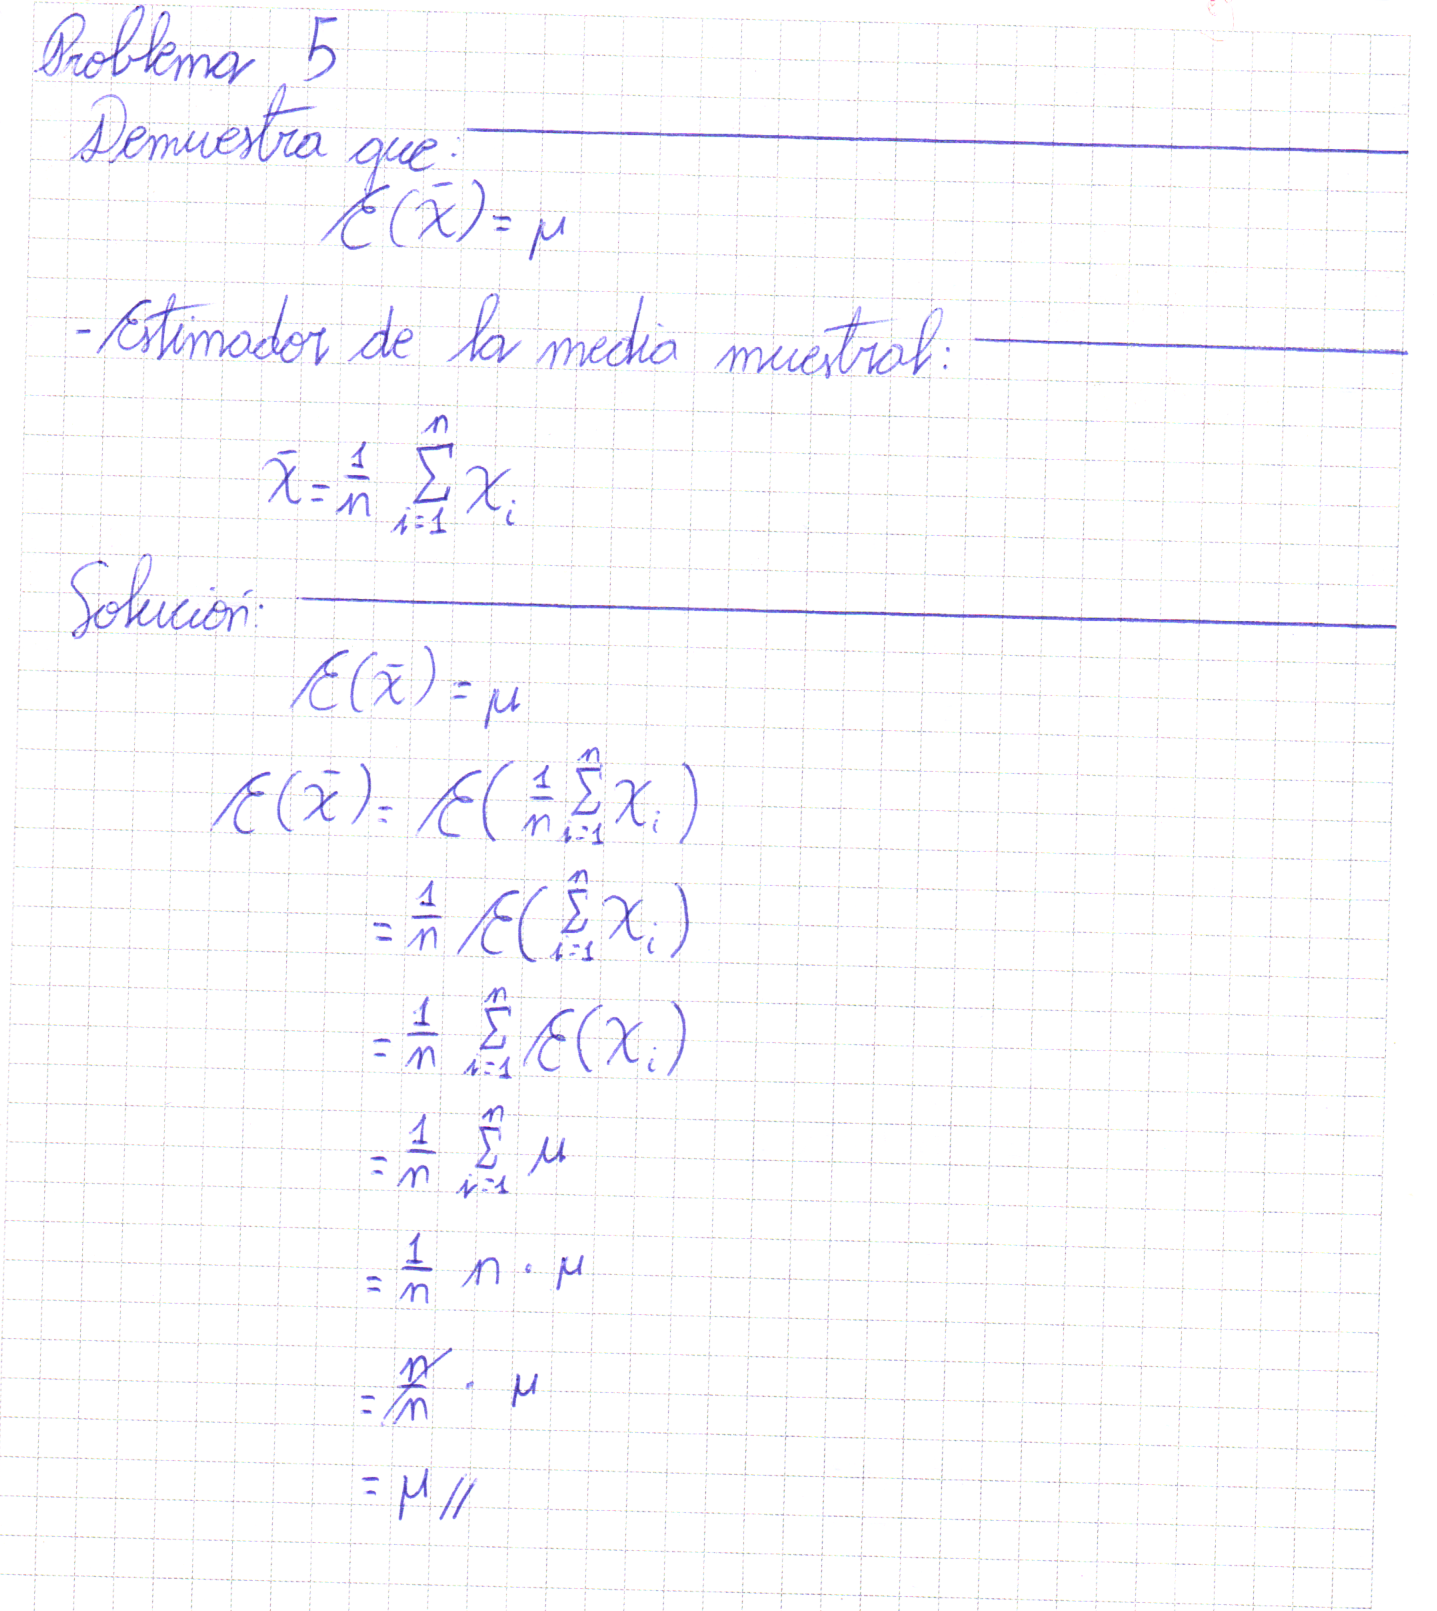 Problema 5
Demuestra que:
E(x̄) = μ
- Estimador de la media muestral:
x̄ = 1/n ∑_{i=1}^{n} x_i
Solución:
E(x̄) = μ
E(x̄) = E( 1/n ∑_{i=1}^{n} x_i )
= 1/n E( ∑_{i=1}^{n} x_i )
= 1/n ∑_{i=1}^{n} E(x_i)
= 1/n ∑_{i=1}^{n} μ
= 1/n n · μ
= n/n · μ
= μ //